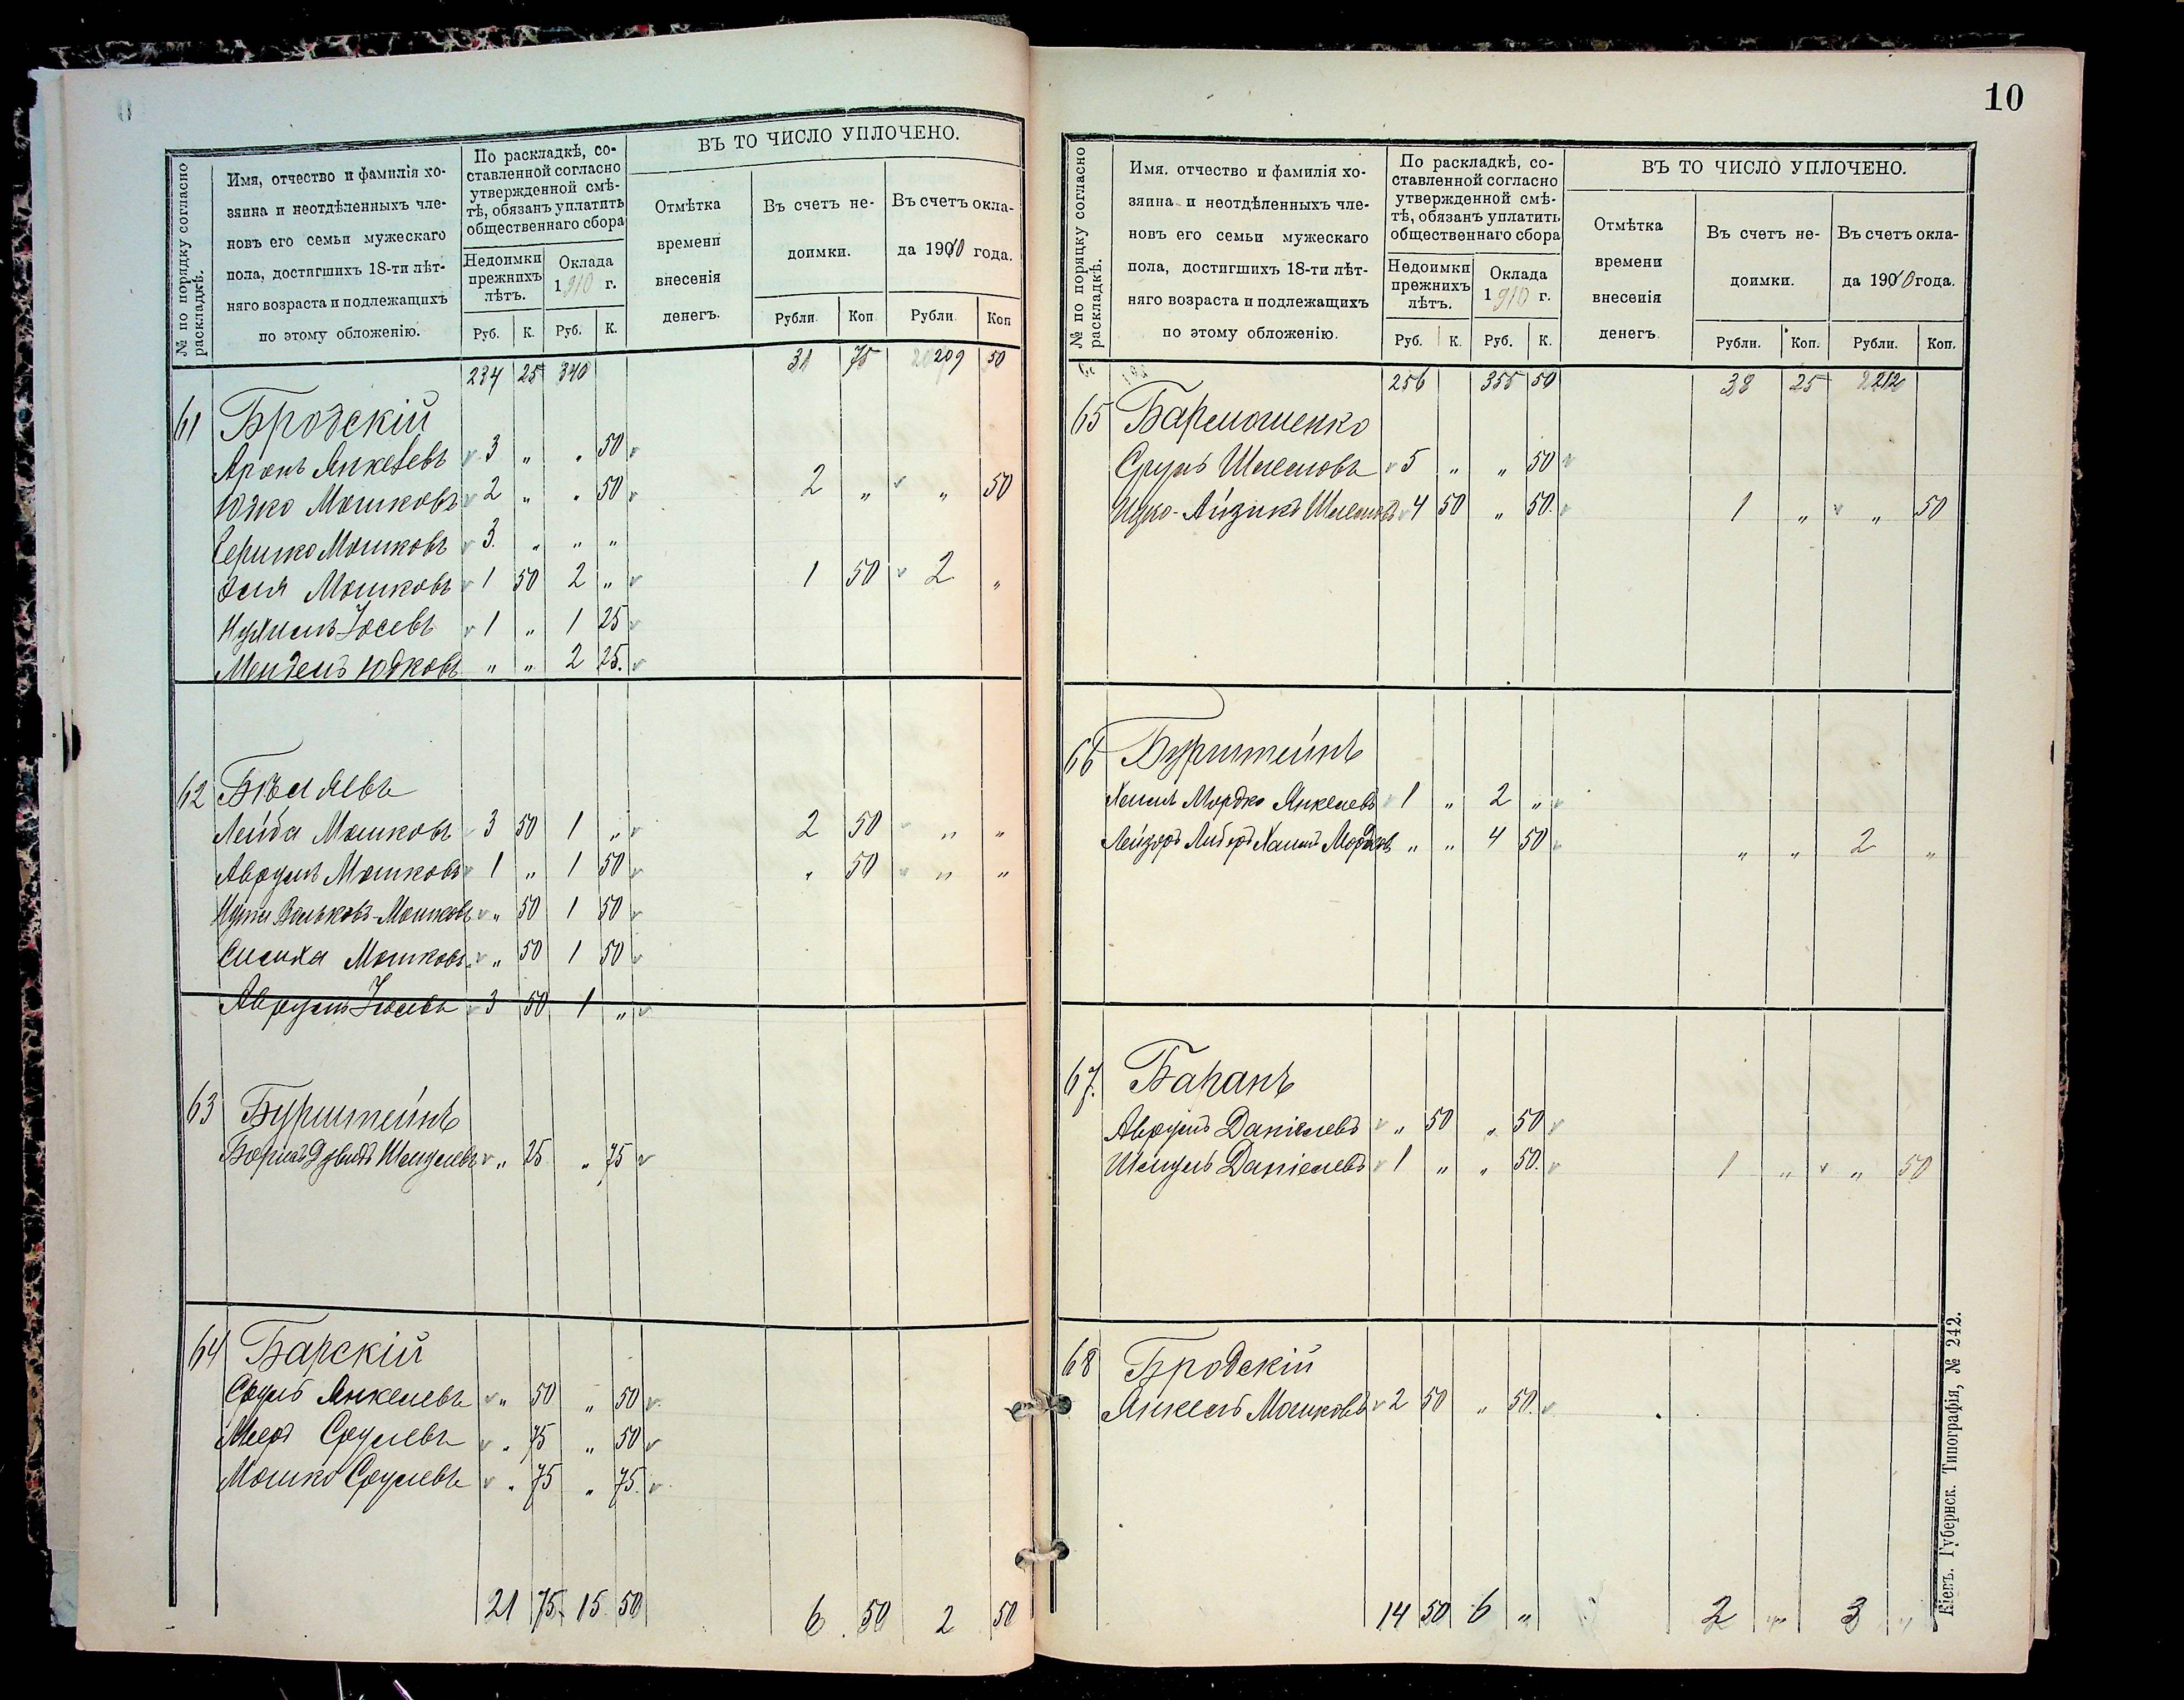 № по порядку согласно раскладкѣ.
Имя, отчество и фамилія хо-
зяина и неотдѣленныхъ чле-
новъ его семьи мужескаго
пола, достигшихъ 18-ти лѣт-
няго возраста и подлежащихъ
по этому обложенію.
По раскладкѣ, со-
ставленной согласно
утвержденной смѣ-
тѣ, обязанъ уплатить
общественнаго сбора
Недоимки
прежнихъ
лѣтъ.
Оклада
1910 г.
Руб. К. Руб. К.
ВЪ ТО ЧИСЛО УПЛОЧЕНО.
Отмѣтка
времени
внесенія
денегъ.
Въ счетъ не-
доимки.
Въ счетъ окла-
да 1910 года.
Рубли Коп Рубли Коп
234 25 340 31 75 209 50
61 Бродскій
Аронъ Янкелевъ 3 „ „ 50
Юдко Мошковъ 2 „ „ 50 2 „ „ 50
Гершко Мошковъ 3 „ „ „
Эля Мошковъ 1 50 2 „ 1 50 2 „
Нухимъ Іосевъ 1 „ 1 25
Мендель Юдковъ „ „ 2 25
62 Бѣляевъ
Лейба Мошковъ 3 50 1 „ 2 50 „ „
Аврумъ Мошковъ 1 „ 1 50 „ 50 „ „
Мошковъ „ 50 1 50
Симха Мошковъ „ 50 1 50
Аврумъ Іосевъ 3 50 1 „
63 Бурштейнъ
Борисъ Дувидъ Шмулевъ „ 25 „ 75
64 Барскій
Сруль Янкелевъ „ 50 „ 50
Меер Срулевъ „ 75 „ 50
Мошко Срулевъ „ 75 „ 75
21 75 15 50 6 50 2 50
10
№ по поряцку согласно раскладкѣ.
Имя. отчество и фамилія хо-
зяина и неотдѣленныхъ чле-
новъ его семьи мужескаго
пола, достигшихъ 18-ти лѣт-
няго возраста и подлежащихъ
по этому обложенію.
По раскладкѣ, со-
ставленной согласно
утвержденной смѣ-
тѣ, обязанъ уплатить
общественнаго сбора
Недоимки
прежнихъ
лѣтъ.
Оклада
1910 г.
Руб. К. Руб. К.
ВЪ ТО ЧИСЛО УПЛОЧЕНО.
Отмѣтка
времени
внесенія
денегъ.
Въ счетъ не-
доимки.
Въ счетъ окла-
да 1910 года.
Рубли. Коп. Рубли. Коп.
256 355 50 38 25 212
65
Сруль Шлемовъ 5 „ „ 50
Ицко-Айзикъ Шлемовъ 4 50 „ 50 1 „ „ 50
66 Бурштейнъ
Мордко Янкелевъ 1 „ 2 „
Лейзоръ 4 50 „ „ 2 „
67 Баранъ
Аврумъ Даніелевъ „ 50 „ 50
Шмуль Даніелевъ 1 „ „ 50 1 „ „ 50
68 Бродскій
Янкель Мошковъ 2 50 „ 50
14 50 6 „ 2 „ 3 „
Кіевъ. Губернск. Типографія, № 242.